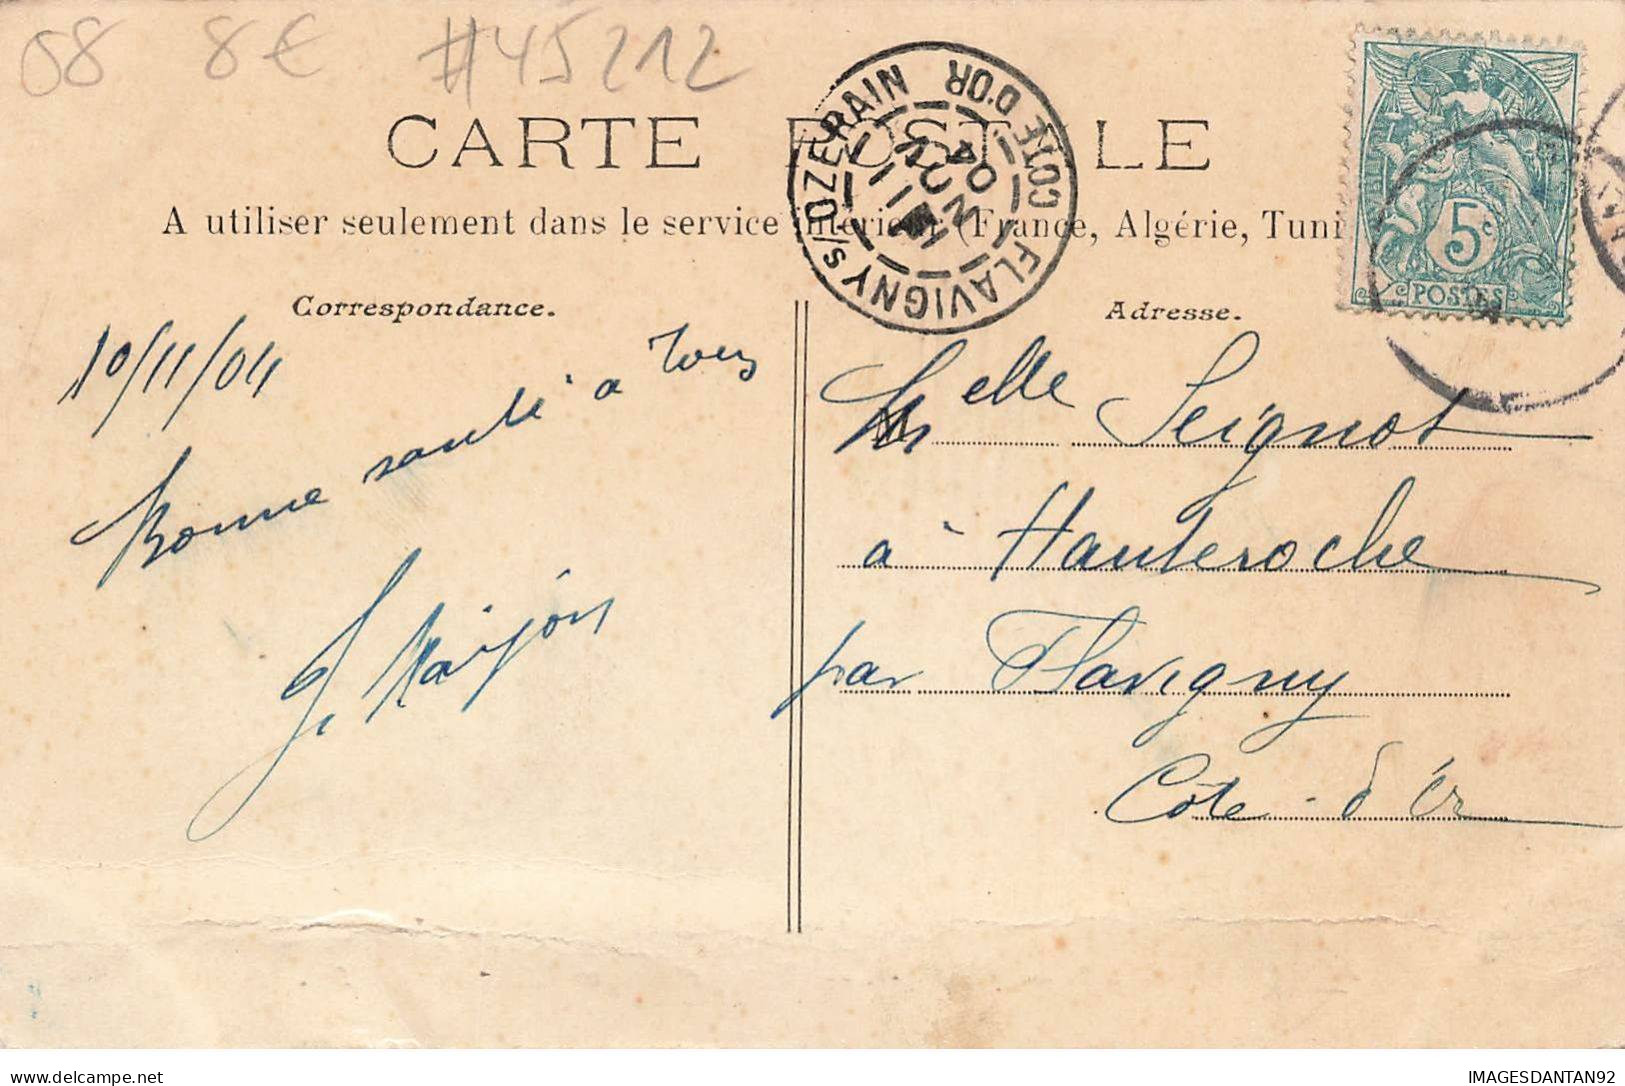 08 8€ #45212
CARTE POSTALE
A utiliser seulement dans le service intérieur (France, Algérie, Tuni
FLAVIGNY s/ OZERAIN COTE D'OR
11 NOV 04
5c
POSTES
Correspondance.
Adresse.
10/11/04
Bonne santé à tous
Melle Seignot
à Hauteroche
par Flavigny
Côte-d'Or
delcampe.net
IMAGESDANTAN92